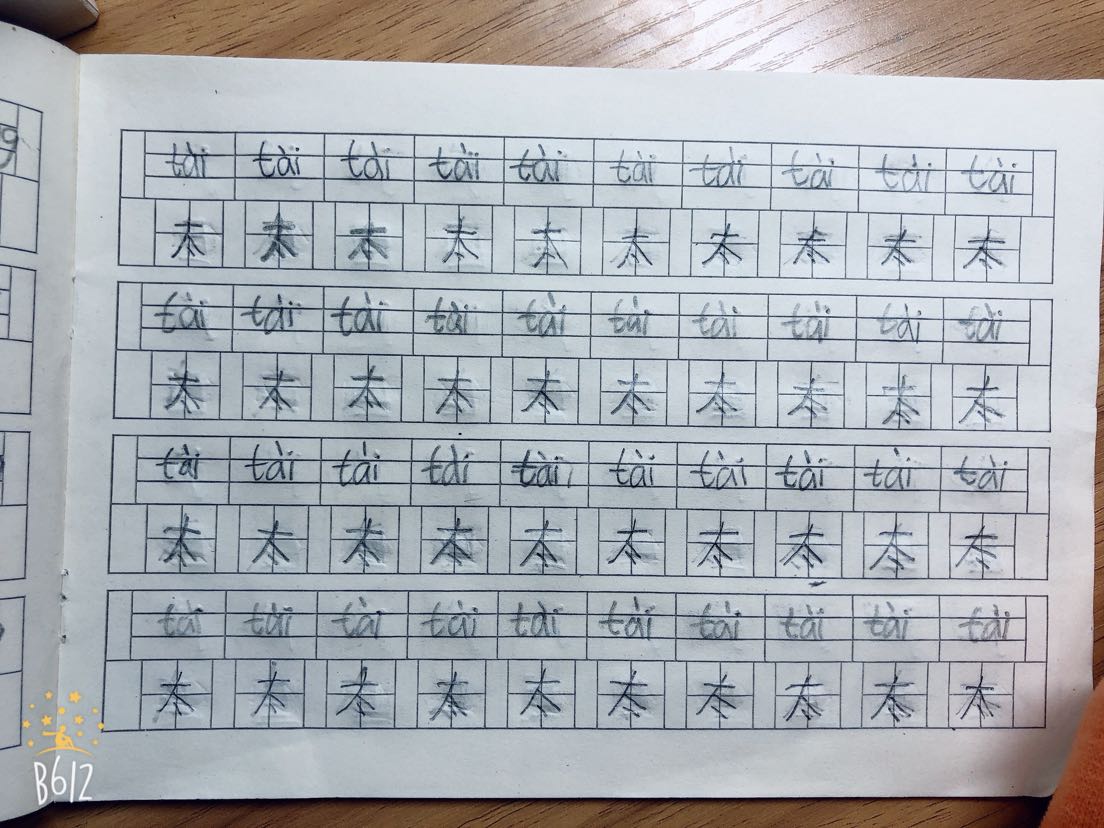 tài tài tài tài tài tài tài tài tài tài
太 太 太 太 太 太 太 太 太 太
tài tài tài tài tài tài tài tài tài tài
太 太 太 太 太 太 太 太 太 太
tài tài tài tài tài tài tài tài tài tài
太 太 太 太 太 太 太 太 太 太
tài tài tài tài tài tài tài tài tài tài
太 太 太 太 太 太 太 太 太 太
B612